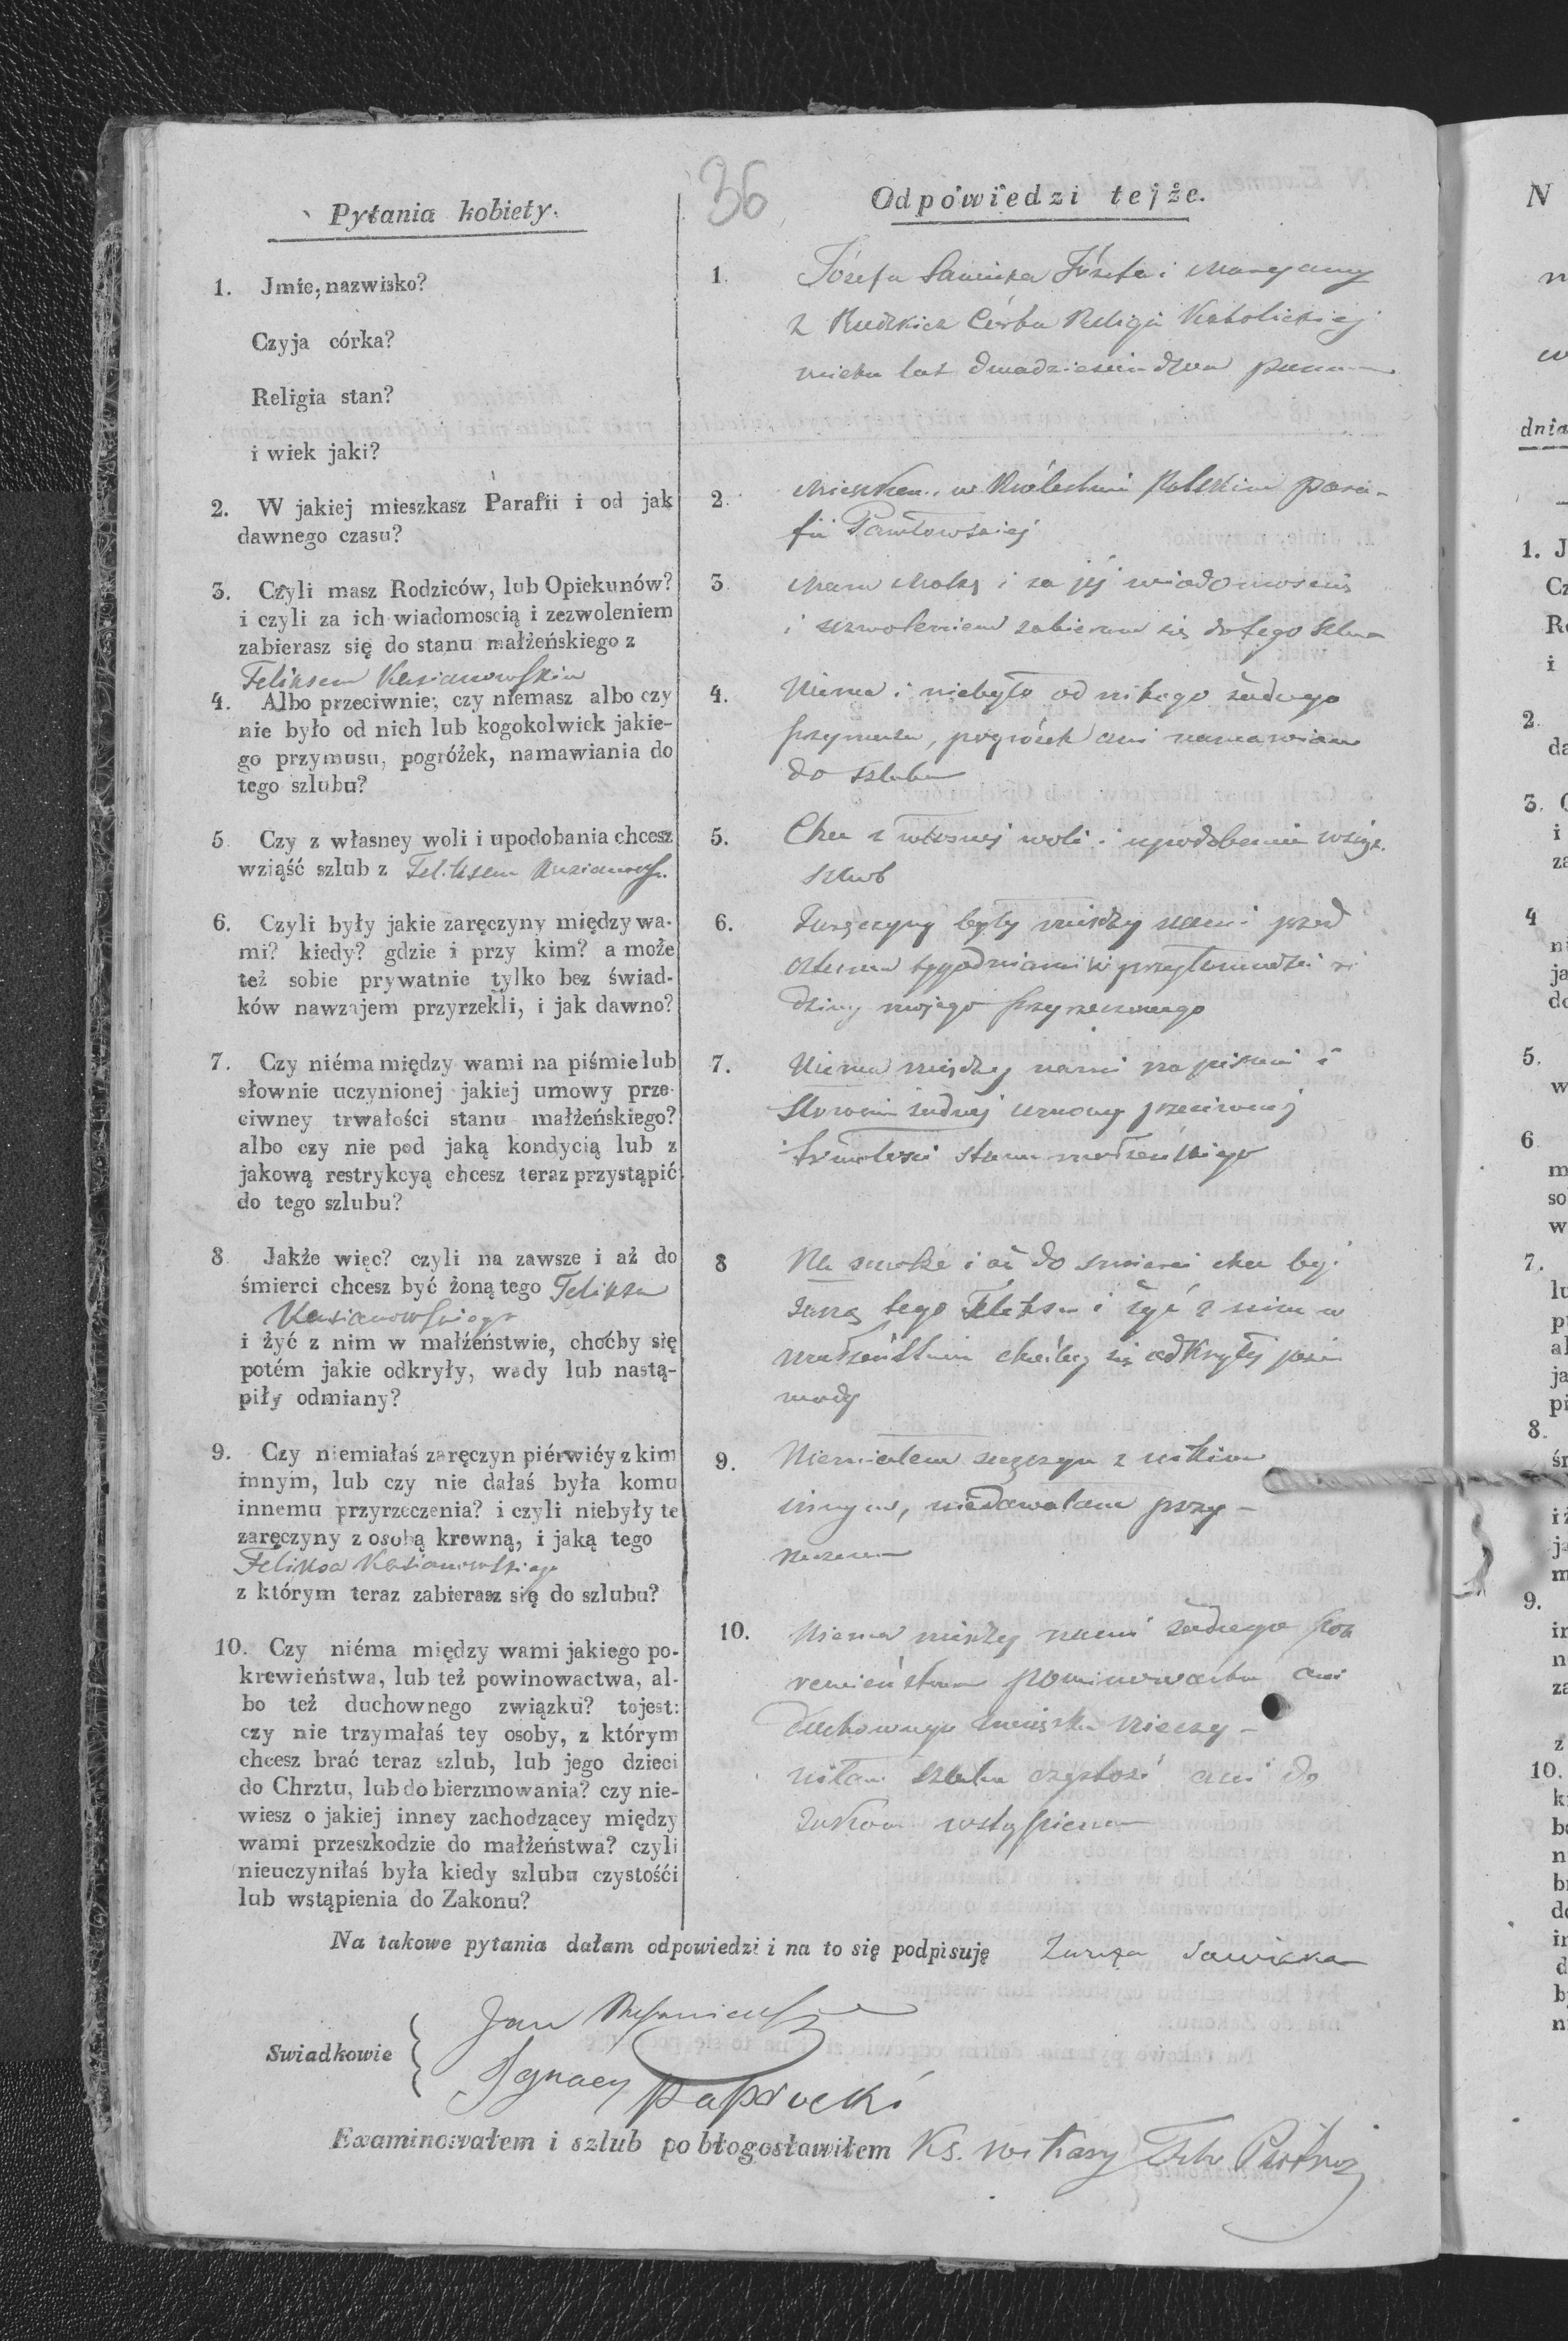 36
Pytania kobiety.
1. Jmie, nazwisko?
Czyja córka?
Religia stan?
i wiek jaki?
2. W jakiej mieszkasz Parafii i od jak
dawnego czasu?
3. Czyli masz Rodziców, lub Opiekunów?
i czyli za ich wiadomoscią i zezwoleniem
zabierasz się do stanu małżeńskiego z
Feliksem
4. Albo przeciwnie; czy niemasz albo czy
nie było od nich lub kogokolwiek jakie-
go przymusu, pogróżek, namawiania do
tego szlubu?
5 Czy z własney woli i upodobania chcesz
wziąść szlub z
6. Czyli były jakie zaręczyny między wa-
mi? kiedy? gdzie i przy kim? a może
też sobie prywatnie tylko bez świad-
ków nawzajem przyrzekli, i jak dawno?
7. Czy niéma między wami na piśmie lub
słownie uczynionej jakiej umowy prze-
ciwney trwałości stanu małżeńskiego?
albo czy nie pod jaką kondycią lub z
jakową restrykcyą chcesz teraz przystąpić
do tego szlubu?
8 Jakże więc? czyli na zawsze i aż do
śmierci chcesz być żoną tego Feliksa
i żyć z nim w małżeństwie, choćby się
potém jakie odkryły, wady lub nastą-
piły odmiany?
9. Czy niemiałaś zaręczyn piérwiéy z kim
innym, lub czy nie dałaś była komu
innemu przyrzeczenia? i czyli niebyły te
zaręczyny z osobą krewną, i jaką tego
Feliksa
z którym teraz zabierasz się do szlubu?
10. Czy niéma między wami jakiego po-
krewieństwa, lub też powinowactwa, al-
bo też duchownego związku? tojest:
czy nie trzymałaś tey osoby, z którym
chcesz brać teraz szlub, lub jego dzieci
do Chrztu, lub do bierzmowania? czy nie-
wiesz o jakiej inney zachodzącey między
wami przeszkodzie do małżeństwa? czyli
nieuczyniłaś była kiedy szlubu czystośći
lub wstąpienia do Zakonu?
Odpowiedzi tejże.
1. Józefa Józefa i Maryanny
z Córka Religii Katolickiej
wieku lat dwadzieścia dwa panna
2. w Królestwie Polskim para-
fii Pawłowskiej
3. Mam Matkę i za jéj wiadomością
i zezwoleniem zabieram się do tego
4. Niema i niebyło od nikogo żadnego
przymusu, pogróżek ani namawiana
do szlubu
5. Chcę z własnej woli i upodobania
szlub
6. Zaręczyny były między nami przed
tygodniami w
mojego przyrzeczonego
7. Niema między nami na piśmie i
żadnej umowy przeciwnej
trwałości stanu małżeńskiego
8 Na zawsze i aż do śmierci chcę być
żoną tego Feliksa i żyć z nim w
małżeństwie choćby się odkryły jakie
wady
9. Niemiałam zaręczyn z nikim
innym, niedawałam przy-
rzeczenia
10. Niema między nami żadnego pok
rewieństwa powinowactwa ani
Duchownego związku Nieczy-
niłam szlubu czystości ani do
Zakonu wstąpienia
Na takowe pytania dałam odpowiedzi i na to się podpisuję
Swiadkowie
Jan
Ignacy Paprocki
Examinowałem i szlub pobłogosławiłem Ks. Wikary
N
dnia
1. J
Cz
Re
i
2
da
3. C
i
za
4
ni
ja
do
5.
w
6
m
so
w
7.
lu
p
al
ja
pi
8.
śr
i ż
9.
in
n
za
z
10.
k
b
n
b
d
in
d
b
n